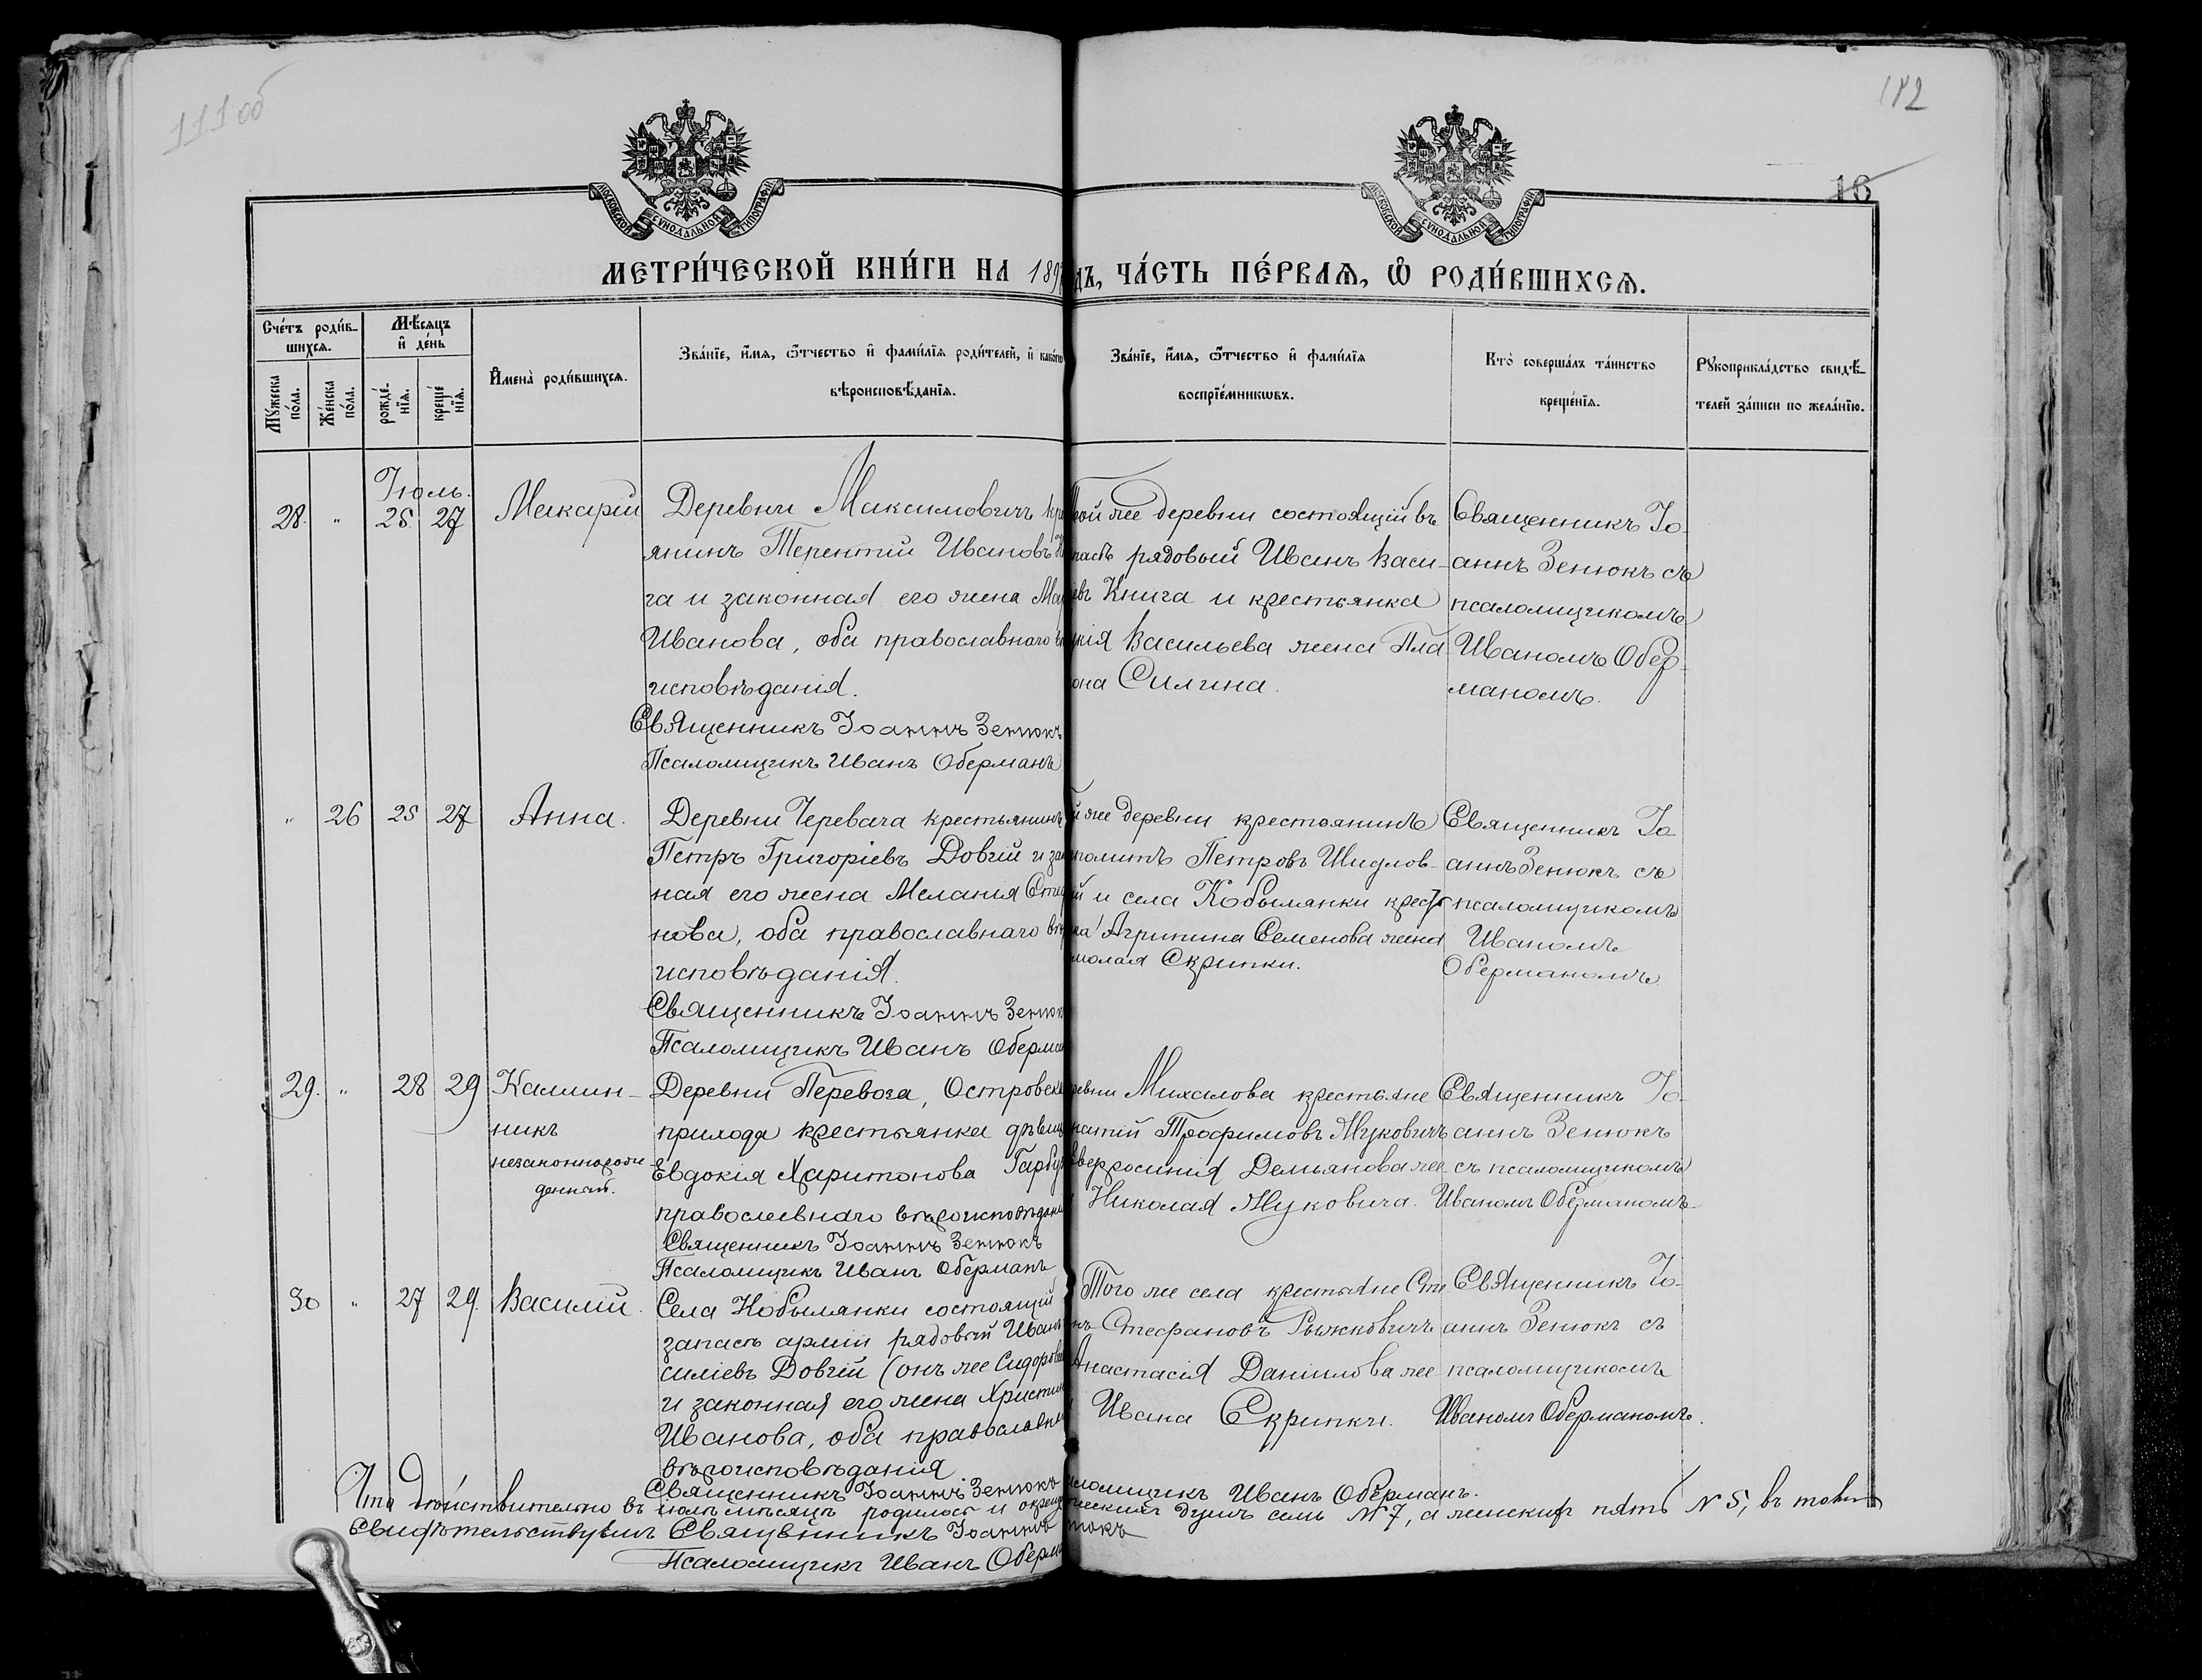 111 об
112
16
МОСКОВСКОЙ СѴНОДАЛЬНОЙ ТИПОГРАФІИ
МОСКОВСКОЙ СѴНОДАЛЬНОЙ ТИПОГРАФІИ
МЕТРИ́ЧЕСКОЙ КНИ́ГИ НА 189
дъ, ЧА́СТЬ ПЕ́РВАѦ, Ѽ РОДИ́ВШИХСѦ.
Сче́тъ роди́в-
шихсѧ.
Мѣ́сяцъ
и де́нь
Мꙋ́жеска по́ла.
Же́нска по́ла.
рожде́-нїѧ.
креще́нїѧ.
И҆мена̀ роди́вшихсѧ.
Зва́нїе, и҆́мѧ, ѻ҆́тчество и҆ фами́лїѧ роди́телей, и҆ како́гѡ
вѣроисповѣ́данїѧ.
Зва́нїе, и҆́мѧ, ѻ҆́тчество и҆ фами́лїѧ
воспрїе́мникѡвъ.
Кто̀ соверша́лъ та́инство
креще́нїѧ.
Рꙋкоприкла́дство свидѣ́-
телей за́писи по жела́нїю.
Іюль.
28. " 25 27 Макарій
Деревни Максимовичъ кре
янинъ Терентій Ивановъ
га и законная его жена Ма
Иванова, оба православнаго
исповѣданія.
Священникъ Іоаннъ Зенюкъ
Псаломщикъ Иванъ Оберманъ
той же деревни состоящій въ
пасѣ рядовый Иванъ Васи-
евъ Книга и крестьянка
кія Васильева жена Пла
она Силина.
Священникъ Іо-
аннъ Зенюкъ съ
псаломщикомъ
Иваномъ Обер-
маномъ.
" 26 25 27 Анна.
Деревни Черевача крестьянинъ
Петръ Григоріевъ Довгій и зак
ная его жена Меланія Сте
нова, оба православнаго вѣ
исповѣданія.
Священникъ Іоаннъ Зенюк
Псаломщикъ Иванъ Оберма
й же деревни крестьянинъ
политъ Петровъ Шидлов-
ій и села Кобылянки крест
ка Агрипина Семенова жена
колая Скрипки.
Священникъ Іо-
аннъ Зенюкъ съ
псаломщикомъ
Иваномъ
Оберманомъ
29. " 28 29 Каллин-
никъ
незаконнорож-
денный.
Деревни Перевоза, Островск
прихода крестьянка дѣвица
Евдокія Харитонова Гарбу
православнаго вѣроисповѣдан
Священникъ Іоаннъ Зенюкъ
Псаломщикъ Иванъ Оберманъ
ревни Михалова крестьяне
натій Трофимовъ Жуковичъ
Евфросинія Демьянова же-
Николая Жуковича.
Священникъ Іо-
аннъ Зенюкъ
съ псаломщикомъ
Иваномъ Оберманомъ
30 " 27 29. Василій.
Села Кобылянки состоящій
запасѣ арміи рядовый Иванъ
силіевъ Довгій (онъ же Сидоров
и законная его жена Христин
Иванова, оба православна
вѣроисповѣданія
Священникъ Іоаннъ Зенюкъ
Того же села крестьяне Сте
нъ Стефановъ Рыжковичъ
Анастасія Даніилова же-
Ивана Скрипки.
Священникъ Іо-
аннъ Зенюкъ съ
псаломщикомъ
Иваномъ Оберманомъ.
аломщикъ Иванъ Оберманъ.
Что дѣйствительно въ іюлѣ мѣсяцѣ родилось и окрещ
ческихъ душъ семь № 7, а женскихъ пять № 5, въ томъ
Свидѣтельствуемъ Священникъ Іоаннъ
нюкъ
Псаломщикъ Иванъ Оберма